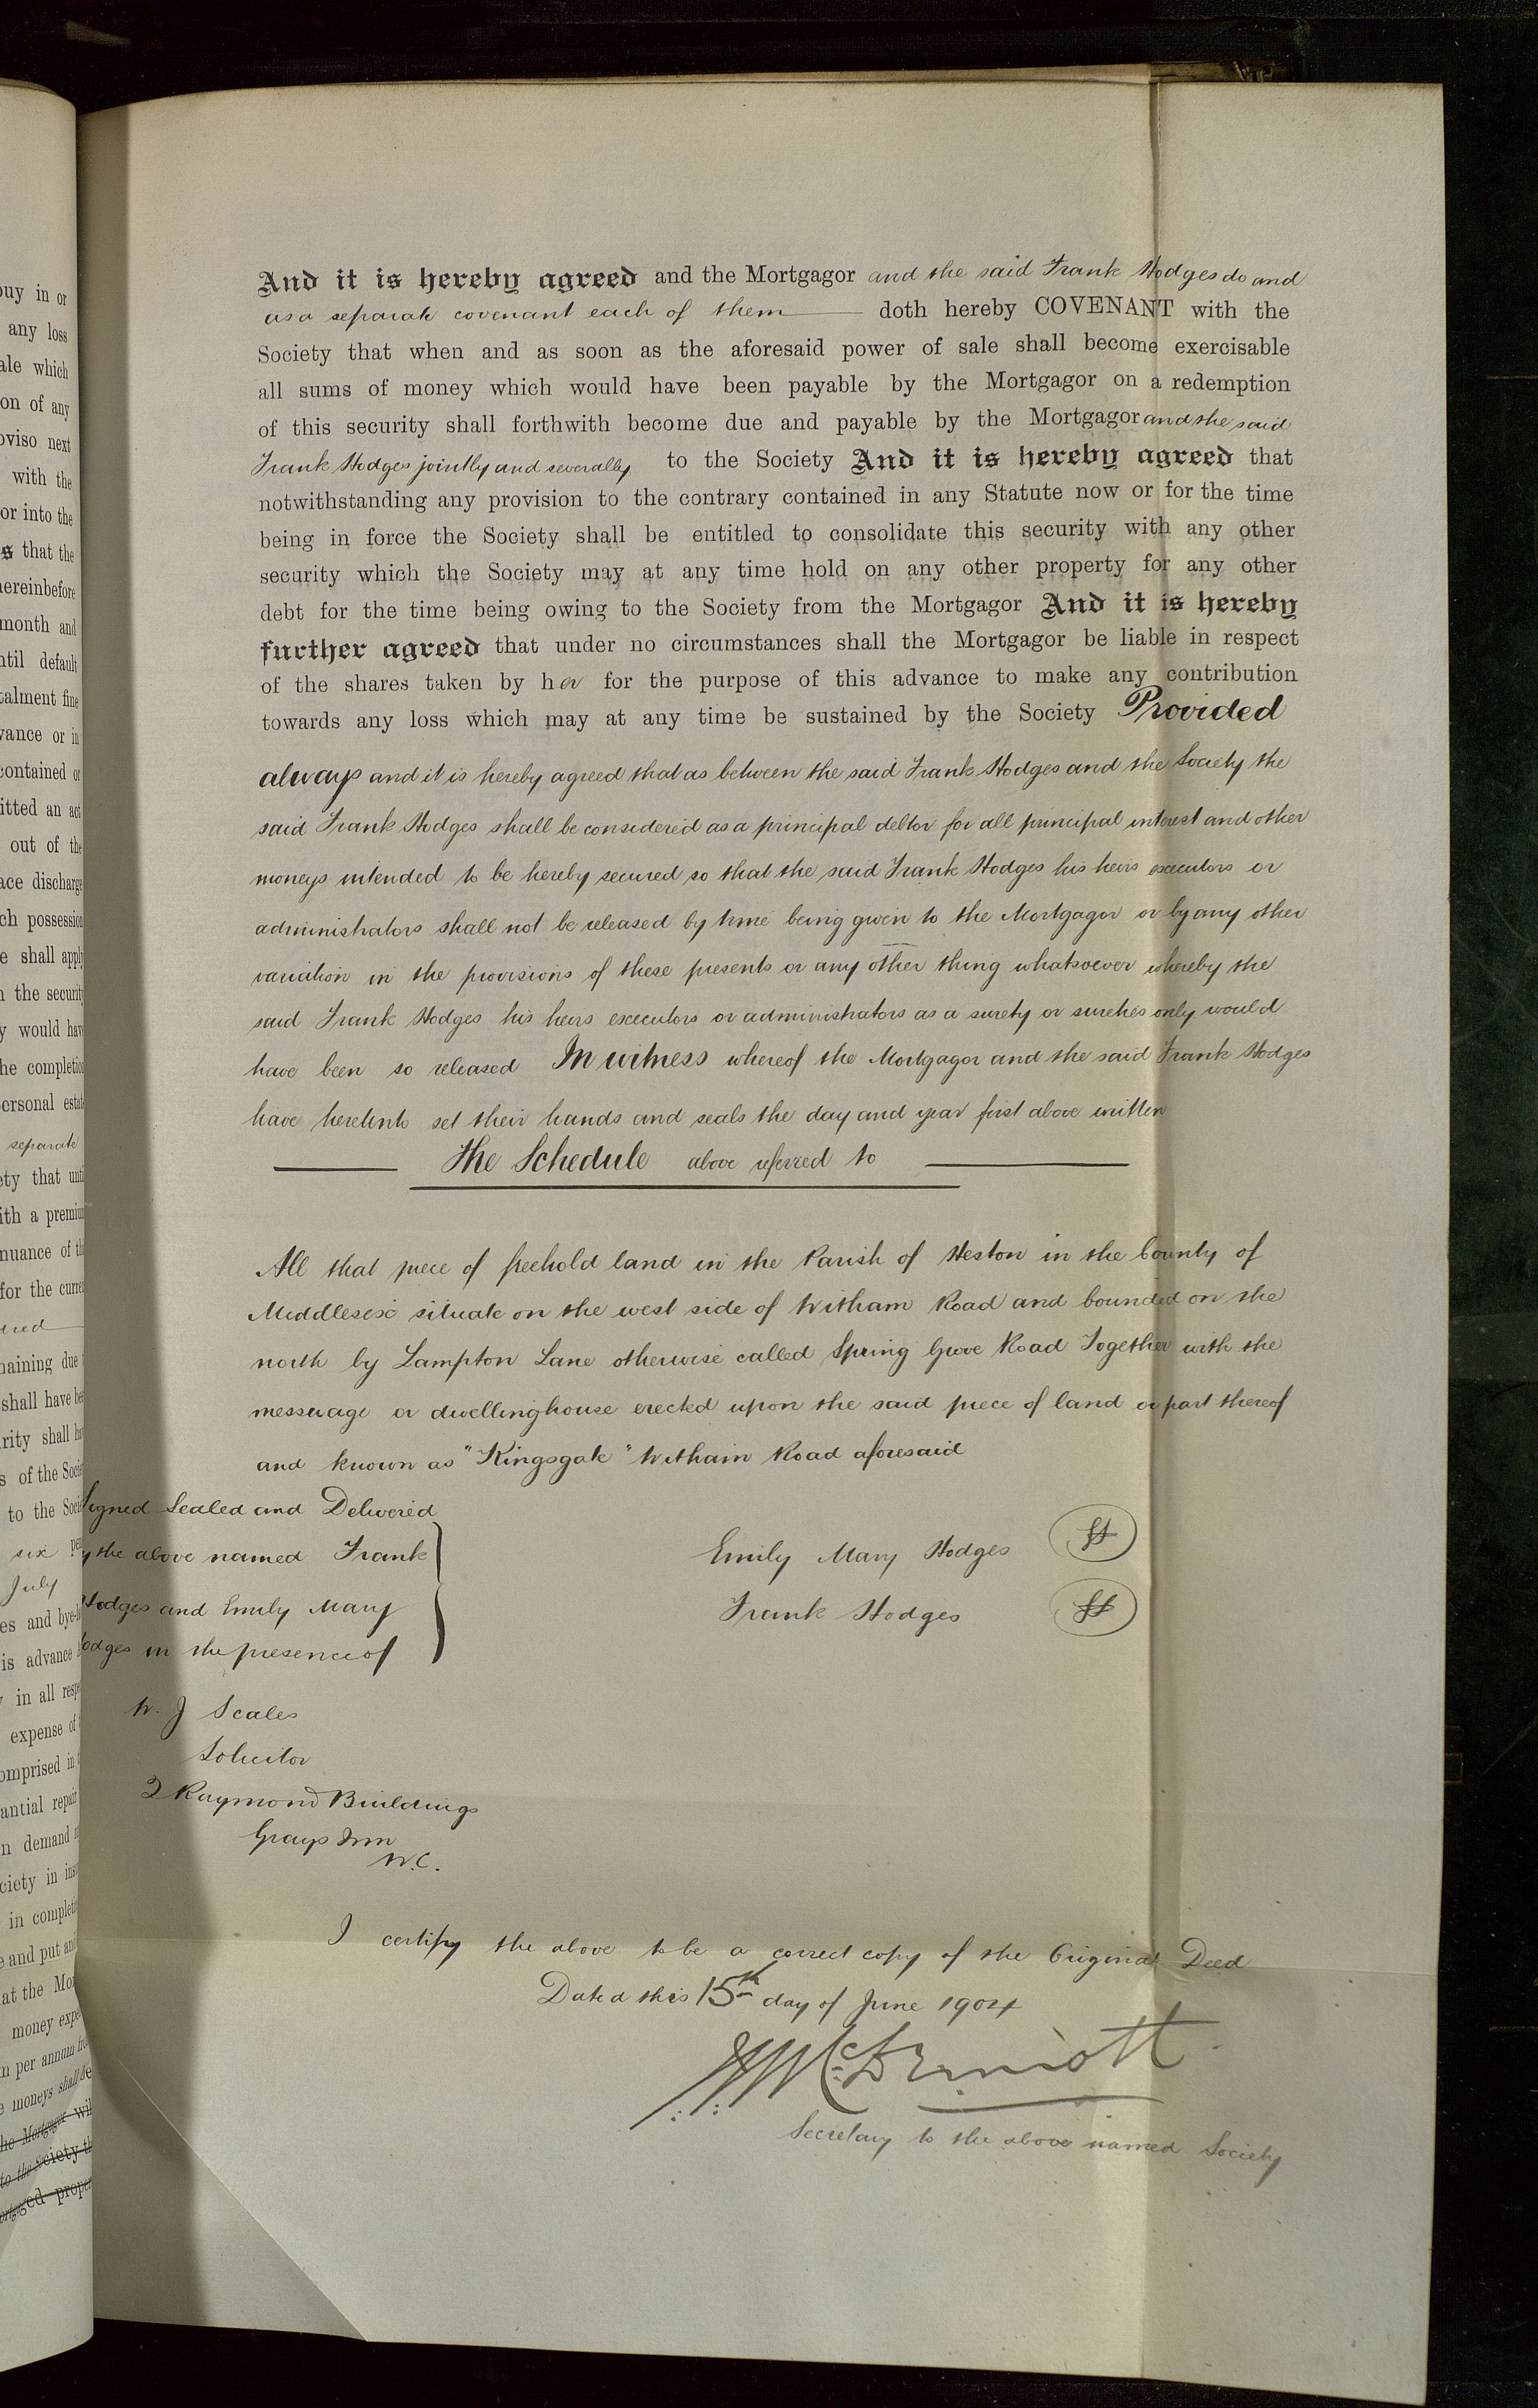 And it is hereby agreed and the Mortgagor and the said Frank Hodges do and
as a separate covenant each of them doth hereby COVENANT with the
Society that when and as soon as the aforesaid power of sale shall become exercisable
all sums of money which would have been payable by the Mortgagor on a redemption
of this security shall forthwith become due and payable by the Mortgagor and the said
Frank Hodges jointly and severally to the Society And it is hereby agreed that
notwithstanding any provision to the contrary contained in any Statute now or for the time
being in force the Society shall be entitled to consolidate this security with any other
security which the Society may at any time hold on any other property for any other
debt for the time being owing to the Society from the Mortgagor And it is hereby
further agreed that under no circumstances shall the Mortgagor be liable in respect
of the shares taken by her for the purpose of this advance to make any contribution
towards any loss which may at any time be sustained by the Society Provided
always and it is hereby agreed that as between the said Frank Hodges and the Society the
said Frank Hodges shall be considered as a principal debtor for all principal interest and other
moneys intended to be hereby secured so that the said Frank Hodges his heirs executors or
administrators shall not be released by time being given to the Mortgagor or by any other
variation in the provisions of these presents or any other thing whatsoever whereby the
said Frank Hodges his heirs executors or administrators as a surety or sureties only would
have been so released In witness whereof the Mortgagor and the said Frank Hodges
have hereunto set their hands and seals the day and year first above written
The Schedule above referred to
All that piece of freehold land in the Parish of Heston in the County of
Middlesex situate on the west side of Witham Road and bounded on the
north by Lampton Lane otherwise called Spring Grove Road Together with the
messuage or dwellinghouse erected upon the said piece of land or part thereof
and known as "Kingsgate" Witham Road aforesaid
Signed Sealed and Delivered
by the above named Frank
Hodges and Emily Mary
Hodges in the presence of
Emily Mary Hodges
Frank Hodges
W. J Scales
Solicitor
2 Raymond Buildings
Grays Inn
W.C.
I certify the above to be a correct copy of the Original Deed
Dated this 15th day of June 1904
McDermott
Secretary to the above named Society
buy in or
any loss
sale which
on of any
proviso next
with the
or into the
that the
hereinbefore
month and
until default
instalment fine
advance or in
contained or
committed an act
out of the
discharge
such possession
shall apply
the security
would have
the completion
personal estate
separate
that until
with a premium
for the current
remaining due
shall have been
of the Society
to the Society
six
July
is advance
in all respects
expense of
comprised in
substantial repair
on demand
in
in
and put and
at the
money
per annum
moneys shall be
the Mortgagor will
to the Society